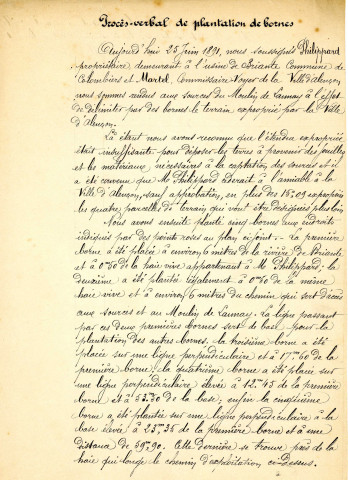 Procès-verbal de plantation de bornes
Aujourd'hui 25 Juin 1891, nous soussignés Philippard
propriétaire, demeurant à l'usine de Briante Commune de
Colombiers et Martel, Commissaire-Voyer de la Ville d'Alençon
nous sommes rendus aux sources du Moulin de Launay à l'effet
de délimiter par des bornes le terrain exproprié par la Ville
d'Alençon.
Là étant nous avons reconnu que l'étendue expropriée
était insuffisante pour déposer les terres à provenir des fouilles
et les matériaux nécessaires à la captation des sources et il
a été convenu que Mr Philippard céderait à l'amiable à la
Ville d'Alençon, sauf approbation, en plus des expropriés
les quatre parcelles de terrain qui vont être désignées plus loin
Nous avons ensuite planté cinq bornes aux endroits
indiqués par des points roses au plan ci-joint. La première
borne a été placée à environ 6 mètres de la rivière de Briante
et à 0m50 de la haie vive appartenant à Mr Philippard; la
deuxième a été plantée également à 0m50 de la même
haie vive et à environ 6 mètres du chemin qui sert d'accès
aux sources et au Moulin de Launay. La ligne passant
par ces deux premières bornes sert de base pour la
plantation des autres bornes. la troisième borne a été
placée sur une ligne perpendiculaire et à 17m60 de la
première borne; la quatrième borne a été placée sur
une ligne perpendiculaire élevée à 12m45 de la première
borne et à 53m50 de la base; enfin la cinquième
borne a été plantée sur une ligne perpendiculaire à la
base élevée à 25m35 de la première borne et à une
distance de 59m90. Cette dernière se trouve près de la
haie qui longe le chemin d'exploitation ci-dessus.